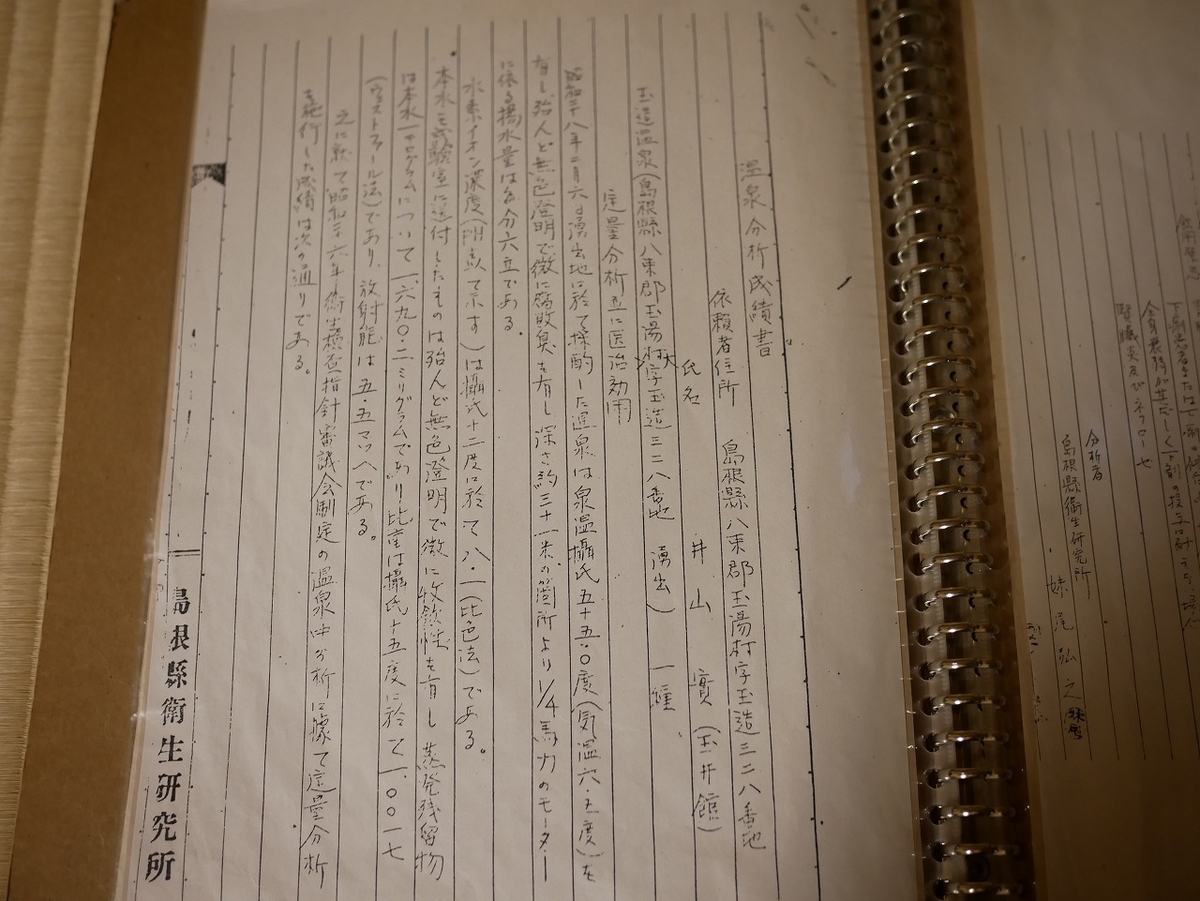 分析者
島根縣衛生研究所
妹尾弘之
温泉分析成績書
依頼者住所 島根縣八束郡玉湯村字玉造三二八番地
氏名 井山實(玉井館)
玉造温泉(島根縣八束郡玉湯村大字玉造三二八番地 湧出) 一種
定量分析並に医治効用
昭和二十八年二月六日湧出地に於て採酌した温泉は泉温攝氏五十五・〇度(気温六・五度)を
有し殆んど無色澄明で微に腐敗臭を有し深さ約三十一米の箇所より1/4馬力のモーター
に依る揚水量は毎分六立である。
水素イオン濃度(PH点て示す)は攝氏十二度に於て八・一(比色法)である。
本水を試験室に送付したものは殆んど無色澄明で微に 性を有し 蒸発残留物
は本水一キログラムについて一、六九〇・二ミリグラムであり 比重は攝氏十五度に於て一・〇〇一七
(ウエストファール法)であり、放射能は五・五マッヘである。
之に就て昭和二六年衛生検査指針審議会制定の温泉中分析に據て定量分析
を施行した成績は次の通りである。
島根縣衛生研究所